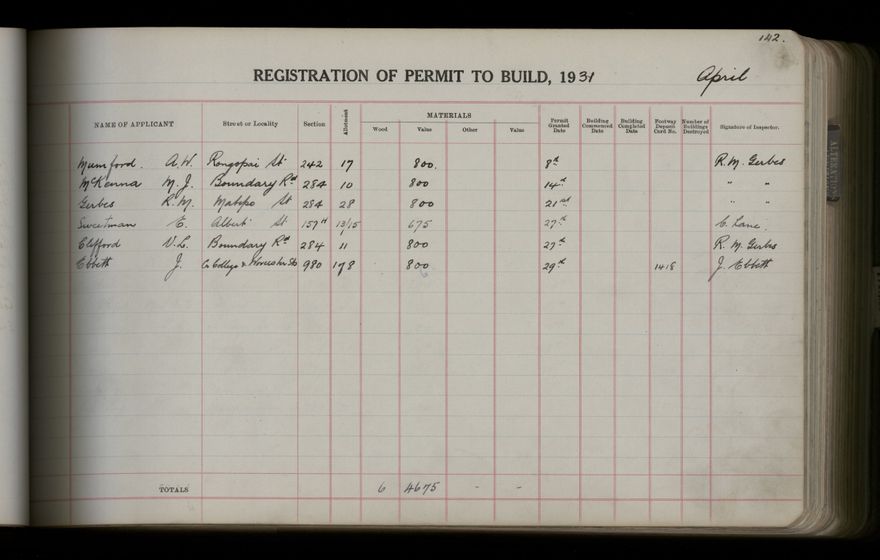 142.
REGISTRATION OF PERMIT TO BUILD, 1931 April
NAME OF APPLICANT Street or Locality Section Allotment MATERIALS Wood Value Other Value Permit Granted Date Building Commenced Date Building Completed Date Footway Deposit Card No. Number of Buildings Destroyed Signature of Inspector.
Mumford. A.W. Rongopai St 242 17 800. 8th R.M. Gerbes
McKenna M.J. Boundary Rd 284 10 800 14th " "
Gerbes R.M. Matipo St 284 28 800 21st " "
Sweetman E. Albert St 157H 13/15 675 27th C. Lane.
Clifford V.L. Boundary Rd 284 11 800 27th R.M. Gerbes
Ebbett J. Cr College & Worcester Sts 980 1478 800 29th 1418 J. Ebbett
TOTALS 6 4675 - -